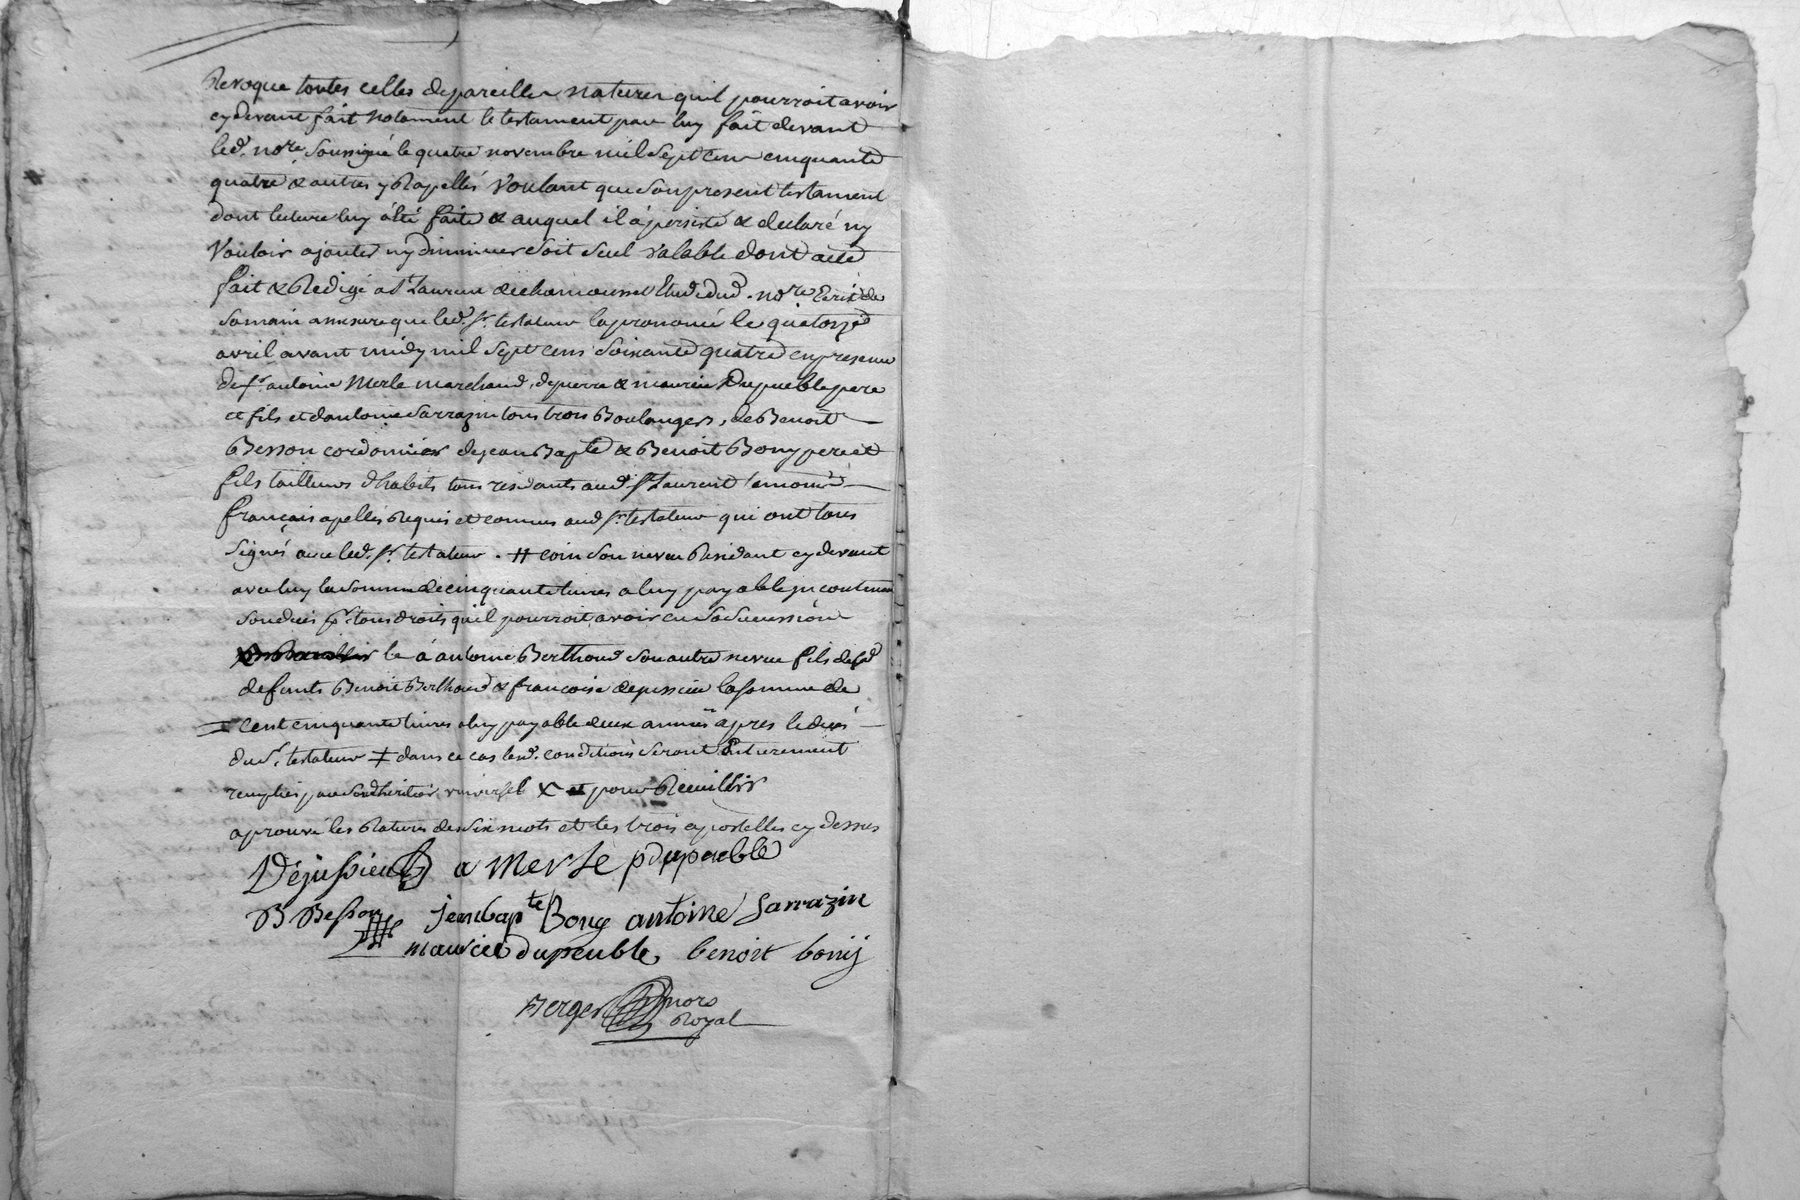 Revoque toutes celles de pareilles natures quil pourroit avoir
cy devant fait notament le testament par luy fait devant
led. nore. soussigné le quatre novembre mil sept cent cinquante
quatre & autres y Rapellés Voulant que son present testament
dont lecture luy á été faite & auquel il á persisté & declaré ny
Vouloir ajouter ny diminuer soit seul valable dont acte
fait & Redigé a St. Laurent de chamousset Etude dud. nore. Ecrit de
sa main a mesure que led. sr. testateur la prononcé le quatorze
avril avant midy mil sept cens soixante quatre en presence
de sr. antoine Merle marchand, de pierre & maurice Dupeuble pere
et fils et dantoine Sarrazin tous trois Boulangers, de Benoit
Besson cordonnier de jean Bapte & Benoit Bony pere et
fils tailleurs d'habits tous residants aud. St. Laurent temoins
français apellés Requis et connus aud. sr. testateur qui ont tous
signés avec led. sr. testateur . # coin son neveu Residant cy devant
avec luy la somme de cinquante livres a luy payable incontinent
son deces pr. tous droits quil pourroit avoir en sa succession
le á antoine Berthoud son autre neveu fils de
defunts Benoit Berthoud & francoise dejussieu la somme de
cent cinquante livres a luy payable deux années apres le décés
dud. sr. testateur ‡ dans ce cas lesd. conditions seront Entierement
remplies par sond. heritier universel X et pour Recuillir
aprouvé les Ratures de six mots et les trois apostelles cy dessus
Dejussieu a Merle p dupeuble
B Besson jean bapte Bony antoine Sarrazin
maurice dupeuble, benoit bonij
Berger nore
Royal